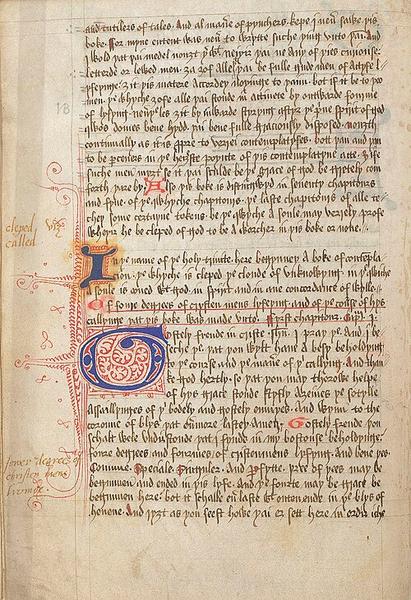 and tutilers of tales. And al maner of pynchers. kepe I neuer sawe þis
boke. ffor myne entent was neuer to wrytte suche þing vnto þai. And
I wold þat þai medel nouȝt þer with. neyþer þai ne any of þies curiouse
letterde or lewed men. ȝa ȝof alle þai be fulle gude men of actyfe l
yfeynge. ȝit þis matere accordeþ noþinge to þaim. bot if it be to þo
men. þe whyche ȝofe alle þai stonde in actiuete by outwarde fourme
of lyfyng neuerþeles ȝit by inwarde styryng aftyr þe pryue spirit of god
whos domes bene hydd þai bene fulle graciously disposed. nouȝth
continually as it is to verrei contemplatyfes. bott þan and þan
to be perceners in þe heȝste poynte of þis contemplatyue acte. ȝife
suche men myȝt se it þai schulde be þe grace of god be gretely com
forth þare by. Also þis boke is distingwyd in seuenty chapitours
and fyue. of þe whyche chapitours. þe laste chapitours of alle te
chep some certayne tokens. be þe whyche A soule may verrely profe
wheþer he be cleped of god to be A worcher in þis boke or none.
cleped
called
In þe name of þe holy trinite. here begynneþ A boke of contempla
cion. þe whyche is cleped þe clowde of vnknowyng. in þe whiche
A soule is oned with god. in spirit and in ane concordance of wylle.
Of foure degrees of cristen mens lyfeyng. and of þe course of hys
callynge þat þis boke was made vnto. First chapitour. Capitulum I.
Gostely frende in criste Ihesu. I pray þe. and I be
seche þe þat þou wylt haue a besy beholdyng
to þe course and þe maner of þi callyng. And thanke
god hertly. so þat þou may thorowe helpe
of hys grace stonde styfly Aȝeines þe sotylle
Assailynges of þi bodely and gostely enmyes. and wynn to the
coroune of lyfe þat euermore lastep. Amen. Gostely frende þou
schalt wele vndirstonde þat I fynde in my bostouse beholdynge.
foure degrees and fourmes of cristenmens lyfyng. and bene þes.
Commune. Speciale. Singuler. And Perfyte. þree of þees may be
begunnen and ended in þis lyfe. And þe fourte may be grace be
begunnen here. bot it schalle euer laste with outen ende in þe blys of
heuene. And ryȝt as þou seest howe þai er sett here in ordir iche
fower degrees of
christen mens
liveinge